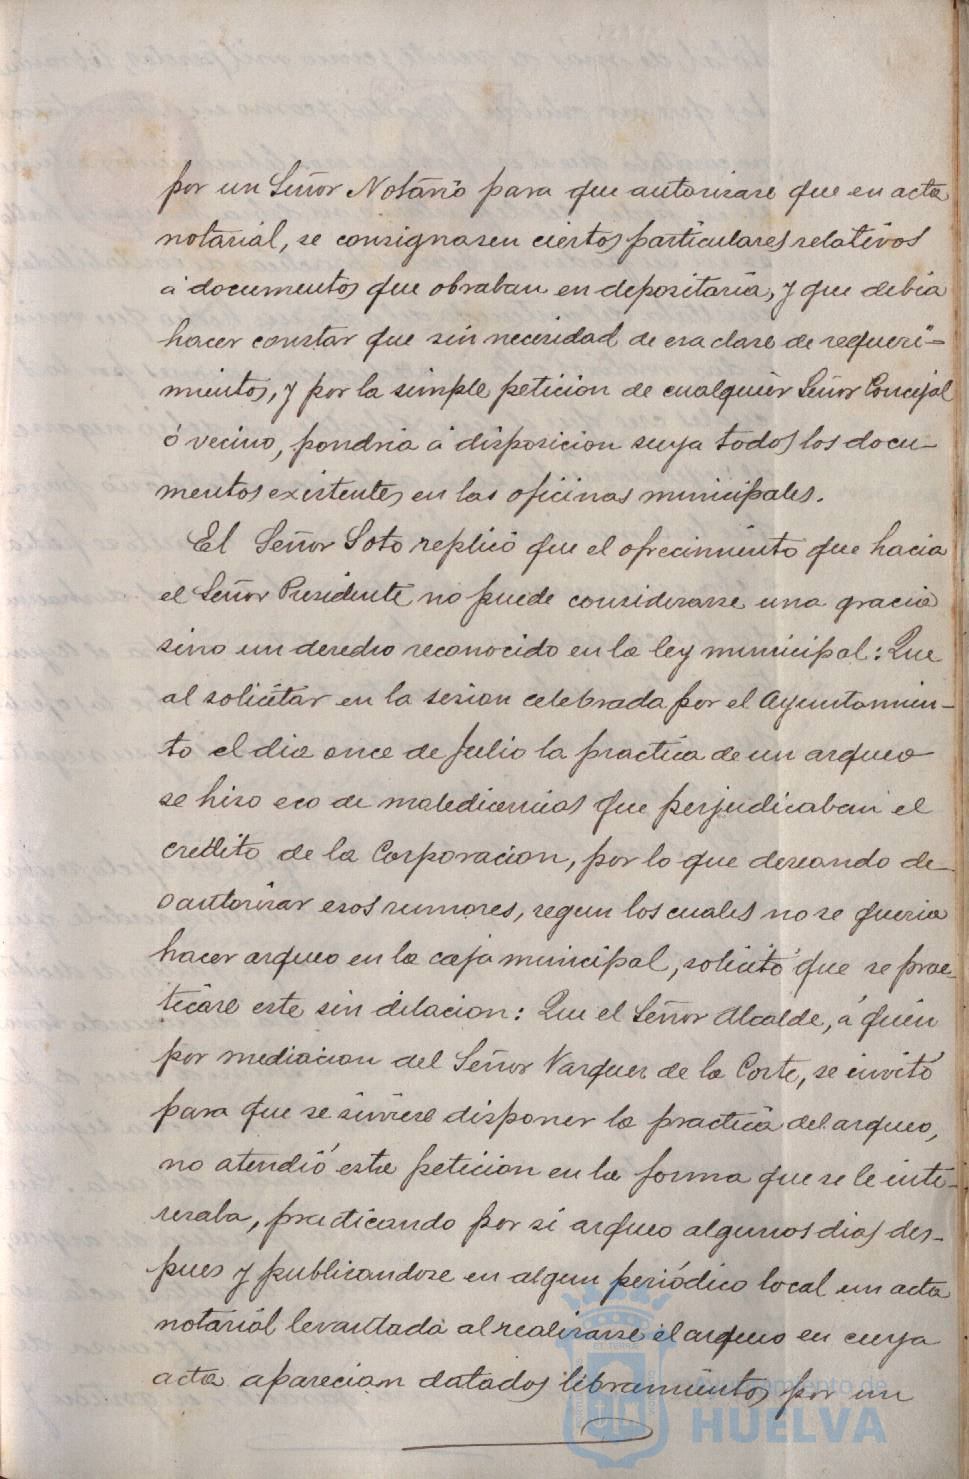 por un Señor Notario para que autorisase que en acta
notarial, se consignasen ciertos particulares relativos
á documentos que obraban en depositaria, y que debia
hacer constar que sin necesidad de esa clase de requeri-
mientos, y por la simple peticion de cualquier Señor Concejal
ó vecino, pondria á disposicion suya todos los docu-
mentos existentes en las oficinas municipales.
El Señor Soto replicó que el ofrecimiento que hacia
el Señor Presidente no puede considerarse una gracia
sino un derecho reconocido en la ley municipal: Que
al solicitar en la sesion celebrada por el Ayuntamien-
to el dia once de Julio la practica de un arqueo
se hizo eco de maledicencias que perjudicaban el
credito de la Corporacion, por lo que deseando de-
sautorizar esos rumores, segun los cuales no se queria
hacer arqueo en la caja municipal, solicitó que se prac-
ticase este sin dilacion: Que el Señor Alcalde, á quien
por mediacion del Señor Vazquez de la Corte, se invitó
para que se sirviese disponer la practica del arqueo,
no atendió esta peticion en la forma que se le inte-
resaba, practicando por sí arqueo algunos dias des-
pues y publicandose en algun periódico local un acta
notarial levantada al realizarse el arqueo en cuya
acta aparecian datados libramientos por un
Ayuntamiento de
HUELVA